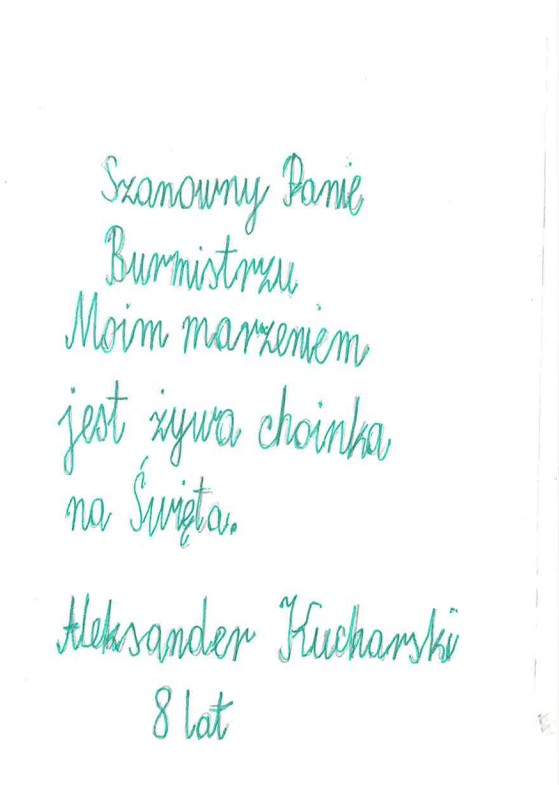 Szanowny Panie
Burmistrzu
Moim marzeniem
jest żywa choinka
na Święta.
Aleksander Kucharski
8 lat